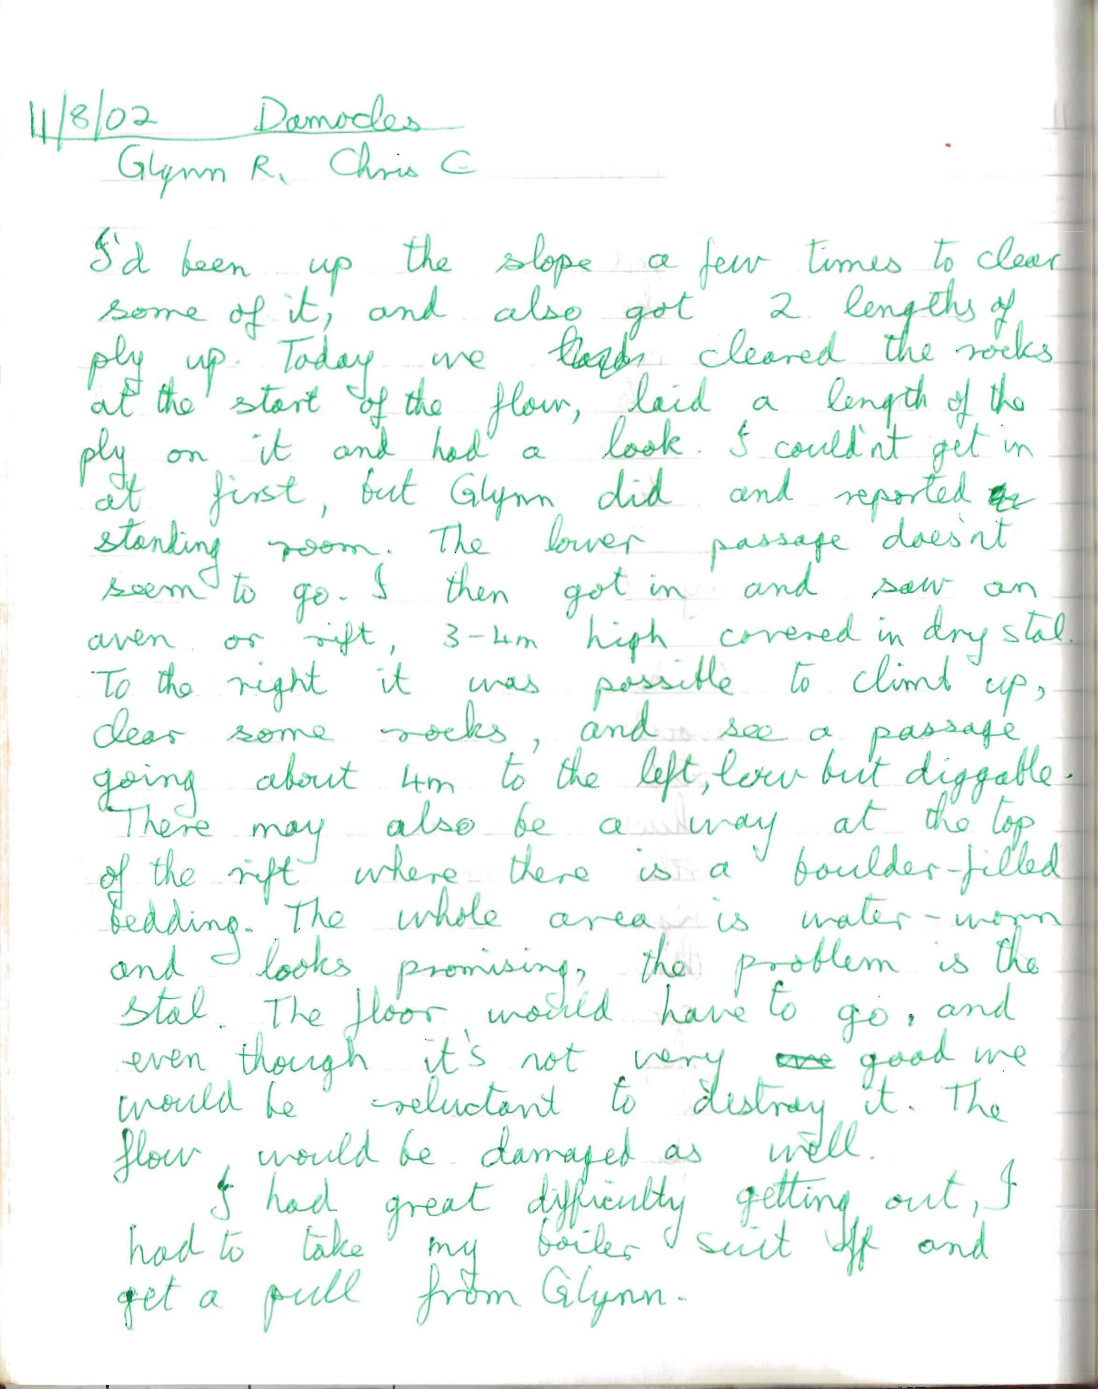 11/8/02 Damocles
Glynn R, Chris C
I'd been up the slope a few times to clear
some of it, and also got 2 lengths of
ply up. Today we cleared the rocks
at the start of the flow, laid a length of the
ply on it and had a look. I could'nt get in
at first, but Glynn did and reported
standing room. The lower passage does'nt
seem to go. I then got in and saw an
aven or rift, 3-4m high covered in dry stal.
To the right it was possible to climb up,
clear some rocks, and see a passage
going about 4m to the left, low but diggable.
There may also be a way at the top
of the rift where there is a boulder-filled
bedding. The whole area is water-worn
and looks promising, the problem is the
stal. The floor would have to go, and
even though it's not very good we
would be reluctant to destroy it. The
flow would be damaged as well.
I had great difficulty getting out, I
had to take my boiler suit off and
get a pull from Glynn.